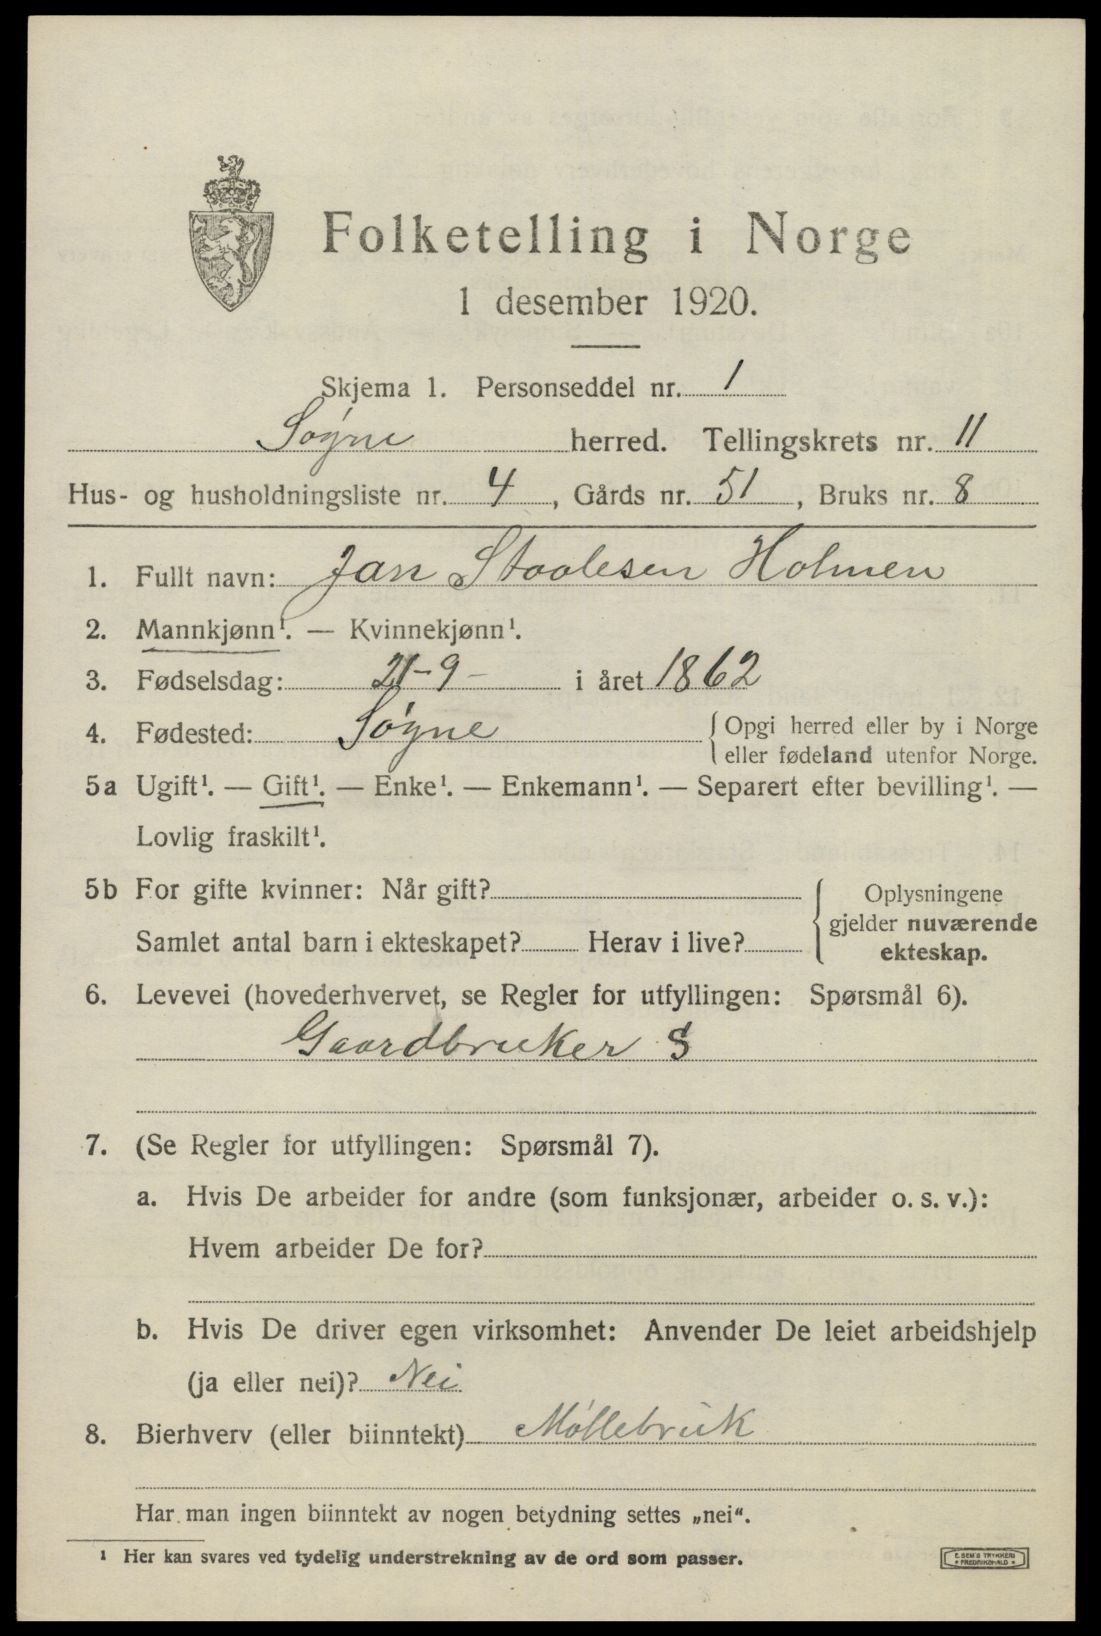 Folketelling i Norge
1 desember 1920.
Skjema 1. Personseddel nr. 1
Søgne herred. Tellingskrets nr. 11
Hus- og husholdningsliste nr. 4, Gårds nr. 51, Bruks nr. 8
1. Fullt navn: Jan Staalesen Holmen
2. Mannkjønn¹. — Kvinnekjønn¹.
3. Fødselsdag: 21-9- i året 1862
4. Fødested: Søgne { Opgi herred eller by i Norge
eller fødeland utenfor Norge.
5a Ugift¹. — Gift¹. — Enke¹. — Enkemann¹. — Separert efter bevilling¹. —
Lovlig fraskilt¹.
5b For gifte kvinner: Når gift? { Oplysningene
gjelder nuværende
Samlet antal barn i ekteskapet? Herav i live?
ekteskap.
6. Levevei (hovederhvervet, se Regler for utfyllingen: Spørsmål 6).
Gaardbruker S
7. (Se Regler for utfyllingen: Spørsmål 7).
a. Hvis De arbeider for andre (som funksjonær, arbeider o. s. v.):
Hvem arbeider De for?
b. Hvis De driver egen virksomhet: Anvender De leiet arbeidshjelp
(ja eller nei)? Nei
8. Bierhverv (eller biinntekt) Møllebruk
Har man ingen biinntekt av nogen betydning settes „nei“.
¹ Her kan svares ved tydelig understrekning av de ord som passer.
E. SEM'S TRYKKERI
• FREDRIKSHALD •